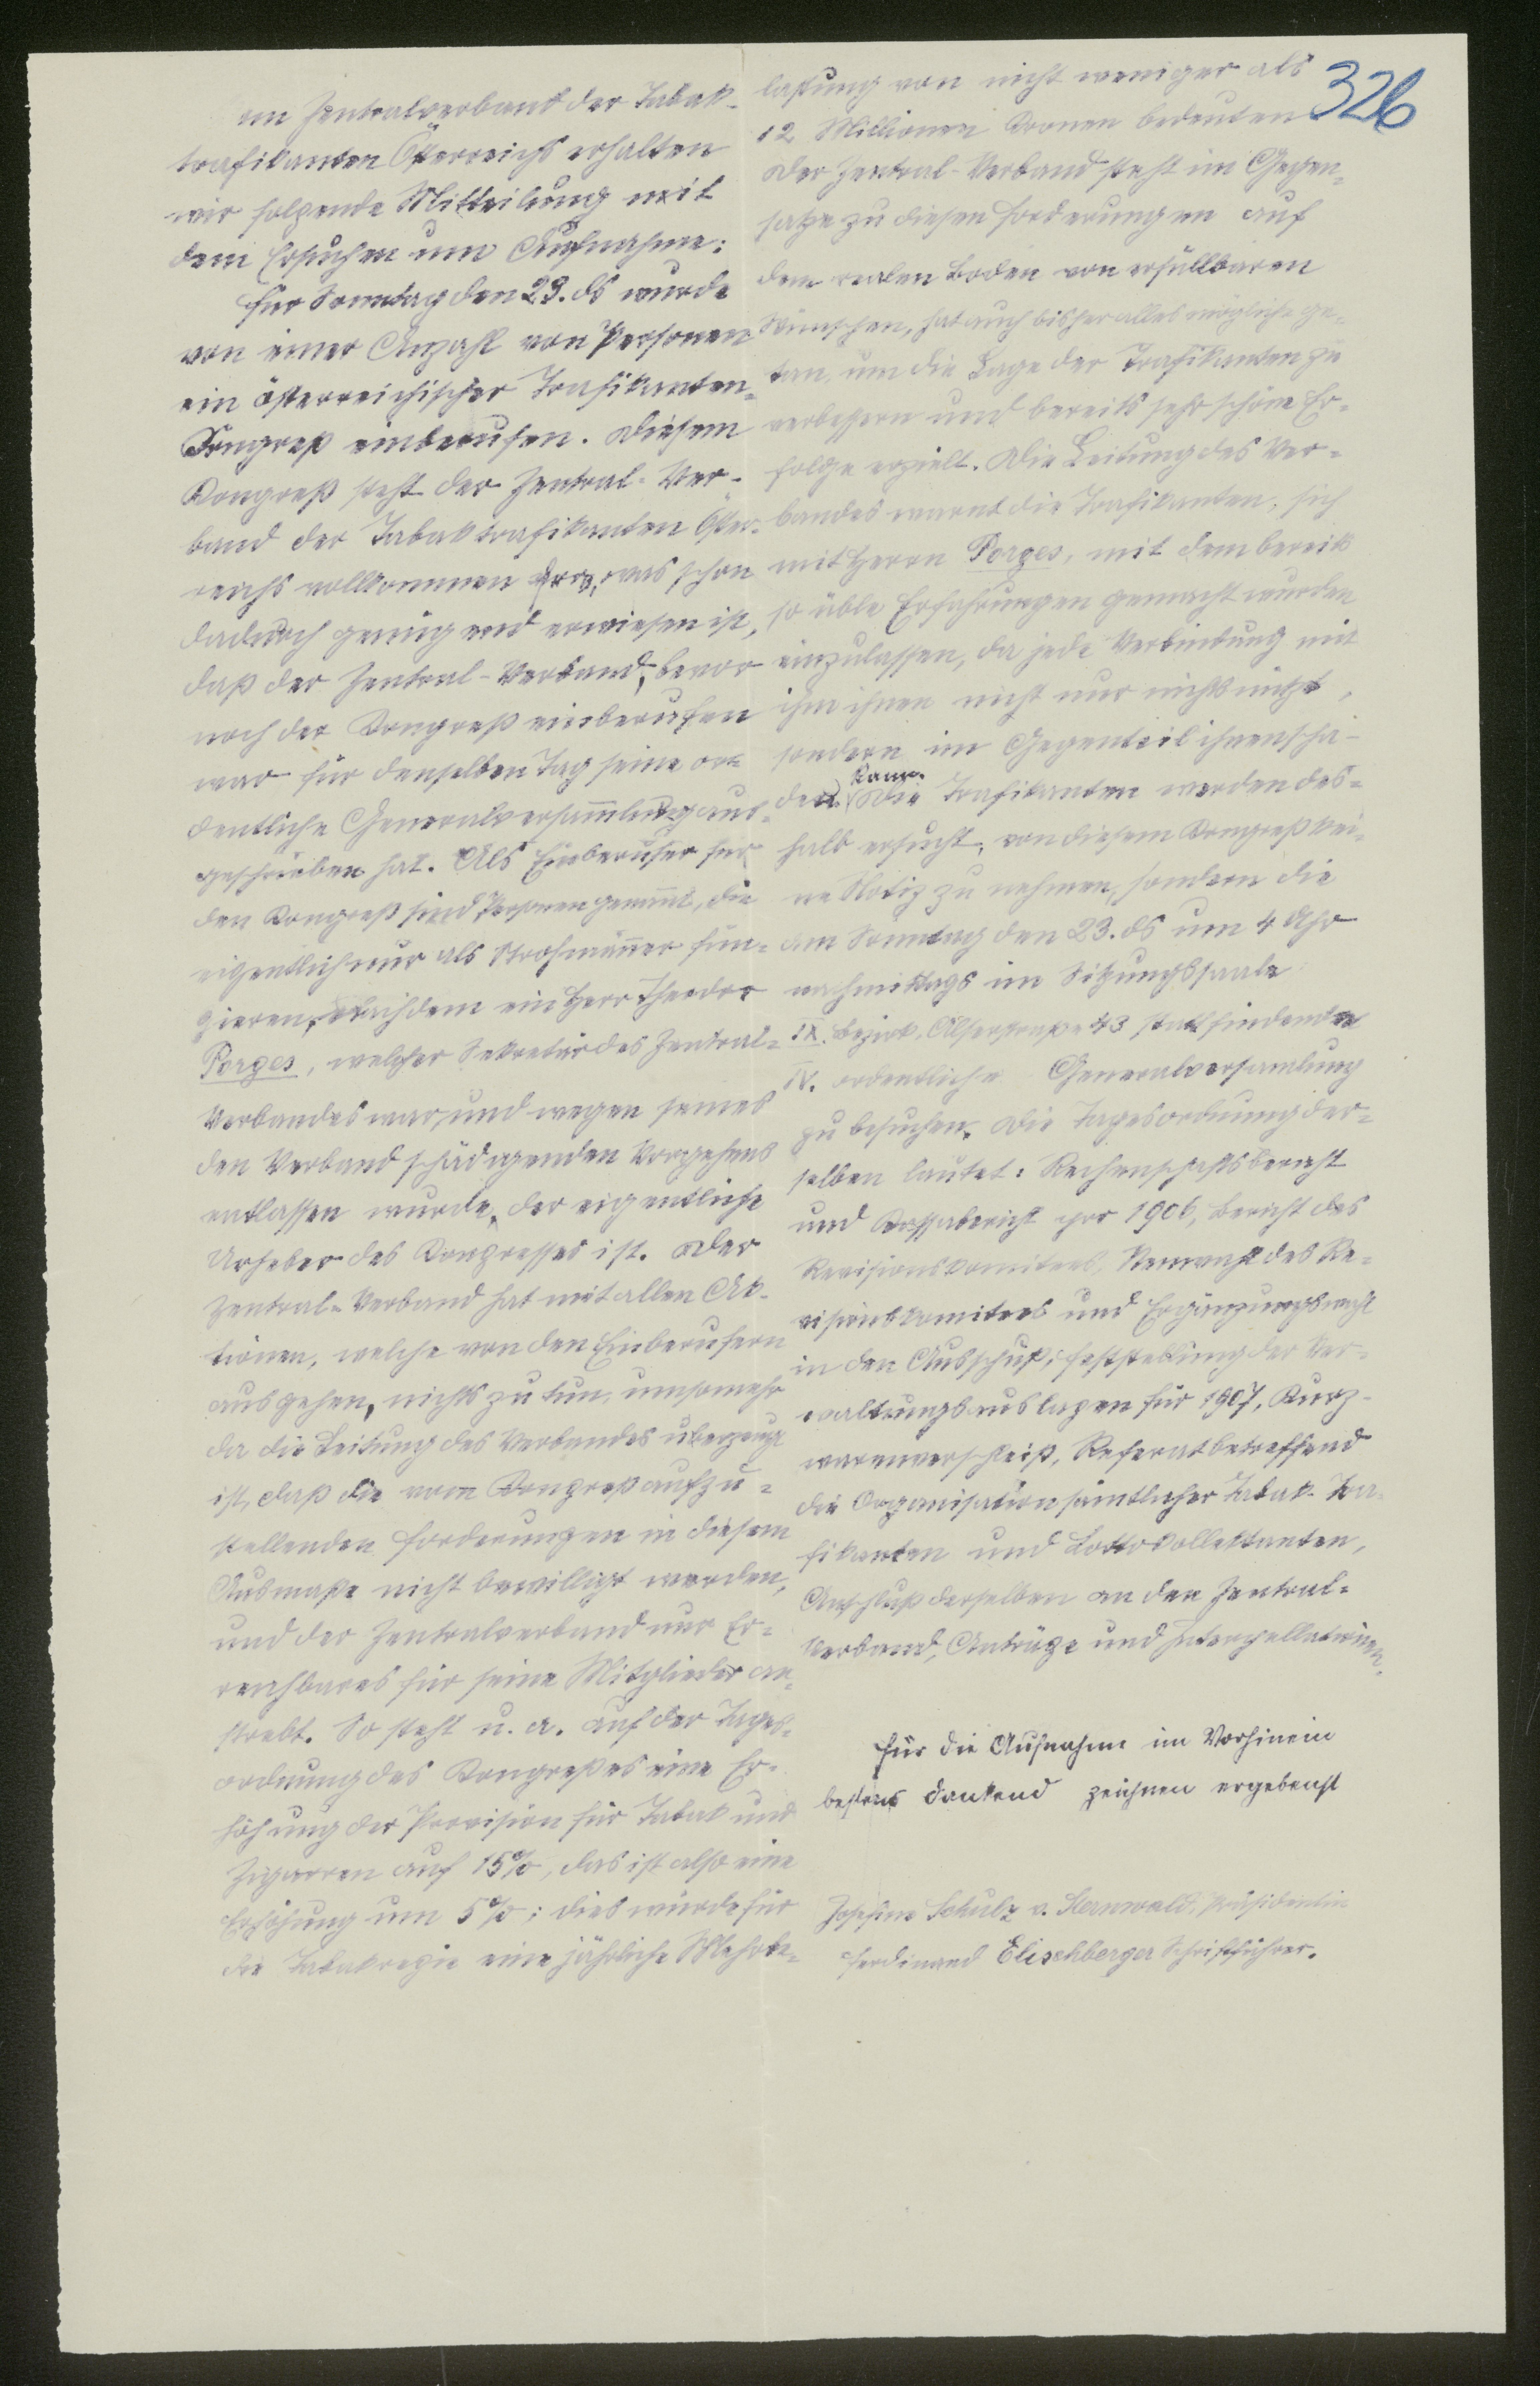 326
om Zentralverband der Tabak-
trafikanten Österreichs erhalten
wir folgende Mitteilung mit
dem Ersuchen um Aufnahme:
Für Sonntag den 23. ds wurde
von einer Anzahl von Personen
ein österreichischer Trafikanten-
Kongreß einberufen. Diesem
Kongreß steht der Zentral-Ver-
band der Tabaktrafikanten Öster-
reichs vollkommen fern, was schon
dadurch genügend erwiesen ist,
daß der Zentral-Verband, bevor
noch der Kongreß einberufen
war für denselben Tag seine or-
dentliche Generalversammlung aus-
geschrieben hat. Als Einberufer für
den Kongreß sind Personen genannt, die
eigentlich nur als Strohmänner fun-
gieren, nachdem ein Herr Theodor
Porges, welcher Sekretär des Zentral-
Verbandes war, und wegen seines
den Verband schädigenden Vorgehens
entlassen wurde, der eigentliche
Urheber des Kongresses ist. Der
Zentral-Verband hat mit allen Ak-
tionen, welche von den Einberufern
ausgehen, nichts zu tun, umsomehr
da die Leitung des Verbandes überzeugt
ist, daß die vom Kongreß aufzu-
stellenden Forderungen in diesem
Ausmaße nicht bewilligt werden,
und der Zentralverband nur Er-
reichbares für seine Mitglieder an-
strebt. So steht u. a. auf der Tages-
ordnung des Kongreßes eine Er-
höhung der Provision für Tabak und
Zigarren auf 15%, das ist also eine
Erhöhung um 5%; dies würde für
die Tabakregie eine jährliche Mehrbe-
lastung von nicht weniger als
12 Millionen Kronen bedeuten
Der Zentral-Verband steht im Gegen-
satze zu diesen Forderungen auf
dem realen Boden von erfüllbaren
Wünschen, hat auch bisher alles mögliche ge-
tan, um die Lage der Trafikanten zu
verbessern und bereits sehr schöne Er-
folge erzielt. Die Leitung des Ver-
bandes warnt die Trafikanten, sich
mit Herrn Porges, mit dem bereits
so üble Erfahrungen gemacht wurden
einzulassen, da jede Verbindung mit
ihm ihnen nicht nur nichts nützt,
sondern im Gegenteil ihnen scha-
den kann. Die Trafikanten werden des-
halb ersucht, von diesem Kongreß kei-
ne Notiz zu nehmen, sondern die
am Sonntag den 23. ds um 4 Uhr
nachmittags im Sitzungssaale
IX. Bezirk, Alserstraße 43 stattfindende
IV. ordentliche Generalversamlung
zu besuchen. Die Tagesordnung der-
selben lautet: Rechenschaftsbericht
und Kassabericht pro 1906, Bericht des
Revisionskomitees, Neuwahl des Re-
visionskomitees und Ergänzungswahl
in den Ausschuß, Feststellung der Ver-
waltungsauslagen für 1907, Kurz-
warenverschleiß, Referat betreffend
die Organisation sämtlicher Tabak-Tra-
fikanten und Lottokollektanten,
Anschluß derselben an den Zentral-
Verband, Anträge und Interpellationen.
Für die Aufnahme im Vorhinein
bestens dankend zeichnen ergebenst
Josefine Schulz v. Sternwald, Präsidentin
Ferdinand Elischberger Schriftführer.